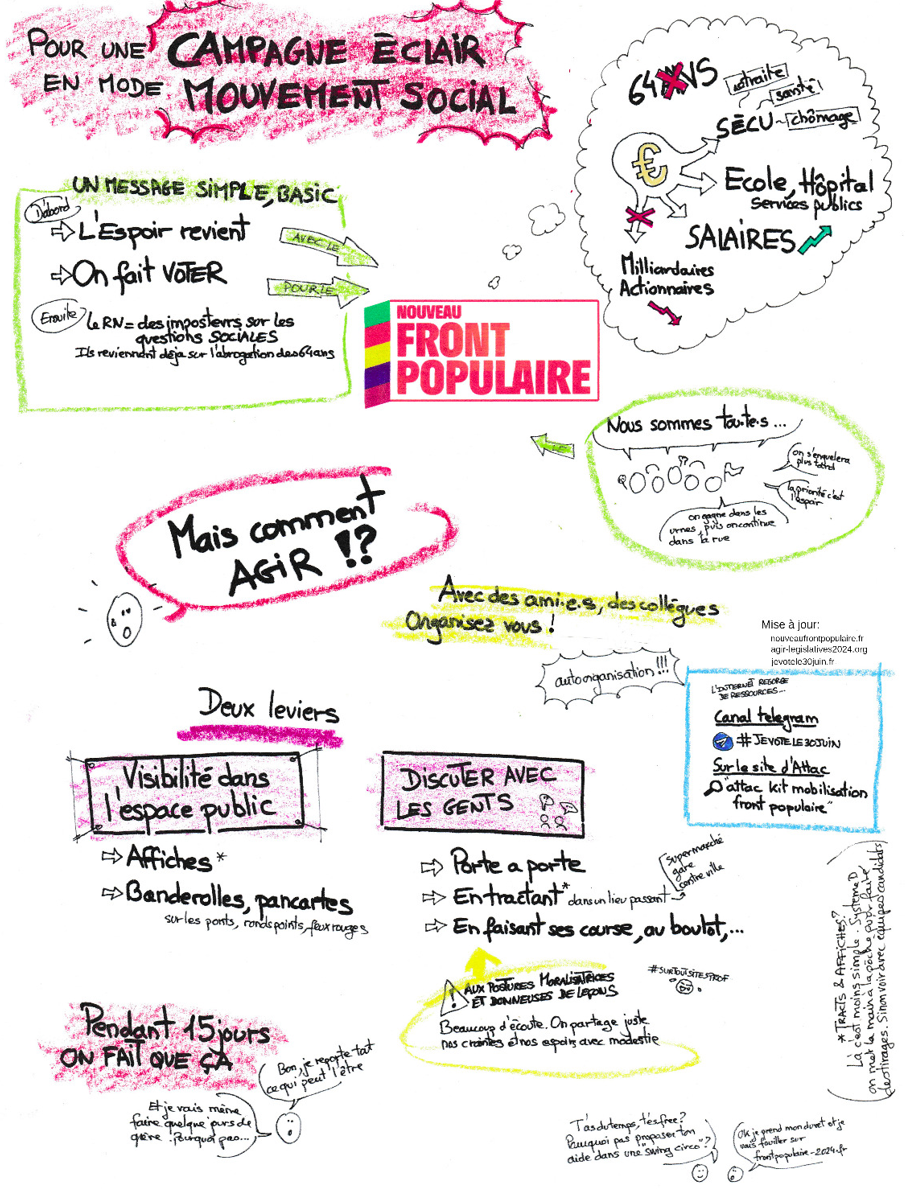 POUR UNE CAMPAGNE ÉCLAIR
EN MODE MOUVEMENT SOCIAL
64 ANS
retraite
santé
SÉCU ~ chômage
€
Ecole, Hôpital
Services publics
SALAIRES
Milliardaires
Actionnaires
UN MESSAGE SIMPLE, BASIC
D'abord
L'Espoir revient
On fait VOTER
AVEC LE
POUR LE
Ensuite
Le RN = des imposteurs sur les
questions SOCIALES
Ils reviennent déja sur l'abrogation des 64 ans
NOUVEAU
FRONT
POPULAIRE
Nous sommes tou·te·s ...
LE
on s'enguelera
plus tard
la priorité c'est
l'espoir
on gagne dans les
urnes, puis on continue
dans la rue
Mais comment
AGIR !?
Avec des ami·e·s, des collègues
Organisez vous !
autoorganisation !!!
Mise à jour:
nouveaufrontpopulaire.fr
agir-legislatives2024.org
jevotele30juin.fr
L'INTERNET REGORGE
DE RESSOURCES...
Canal telegram
#JEVOTELE30JUIN
Sur le site d'Attac
"attac kit mobilisation
front populaire"
Deux leviers
Visibilité dans
l'espace public
Affiches *
Banderolles, pancartes
sur les ponts, ronds points, feux rouges
DISCUTER AVEC
LES GENTS
Porte a porte
En tractant * dans un lieu passant
supermarché
gare
centre ville
En faisant ses course, au boulot,...
AUX POSTURES MORALISATRICES
ET DONNEUSES DE LEÇONS
#SURTOUTSITESPROF
Beaucoup d'écoute. On partage juste
nos craintes et nos espoirs avec modestie
* TRACTS & AFFICHES?
Là c'est moins simple. Systeme D
on met la main a la poche pour faire
des tirages. Sinon voir avec équipes candidats
Pendant 15 jours
ON FAIT QUE ÇA
Bon, je reporte tat
ce qui peut l'être
Et je vais même
faire quelque jours de
grève. Pourquoi pas...
T'as du temps, t'es free?
Pourquoi pas proposer ton
aide dans une "swing circo"?
Ok je prend mon duvet et je
vais fouiller sur
frontpopulaire-2024.fr